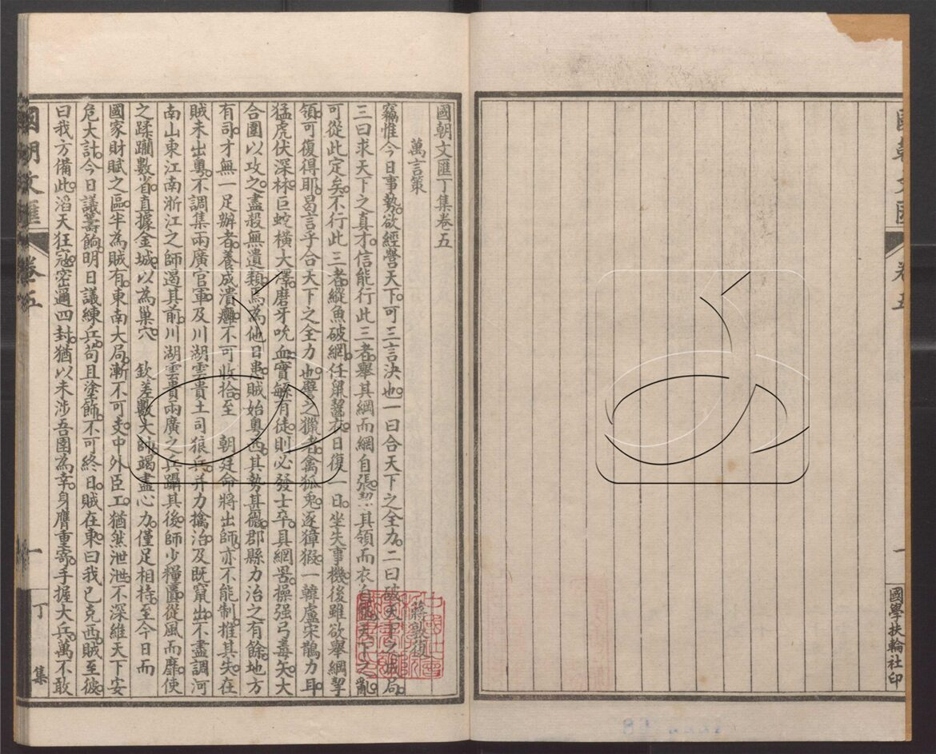 國朝文匯
卷五
一
國學扶輪社印
國朝文匯丁集卷五
萬言策 蔣敦復
竊惟今日事勢欲經營天下可三言決也一曰合天下之全力二曰破天下之成局
三曰求天下之真才信能行此三者舉其綱而綱自張挈其領而衣自天下之亂
可從此定矣不行此三者縱魚破網任鼠齧衣日復一日坐失事機後雖欲舉綱挈
領可復得耶曷言乎合天下之全力也譬之獵者禽狐兎逐獐猳一韓盧宋鵲力耳
猛虎伏深林巨蛇橫大澤磨牙吮血實繁有徒則必發士卒具網罟操强弓毒矢大
合圍以攻之盡殺無遺類焉為他日患賊始粵西其勢甚微郡縣力治之有餘地方
有司才無一足辦者養成潰癰不可收拾至 朝廷命將出師亦不能制推其失在
賊未出粵不調集兩廣官軍及川湖雲貴土司狼兵并力擒治及既竄出不盡調河
南山東江南浙江之師遏其前川湖雲貴兩廣之兵躡其後師少糧匱從風而靡使
之蹂躪數省直據金城以為巢穴 欽差數大帥竭盡心力僅足相持至今日而
國家財賦之區半為賊有東南大局漸不可支中外臣工猶然泄泄不深維天下安
危大計今日議籌餉明日議練兵苟且塗飾不可終日賊在東曰我已克西賊至彼
曰我方備此滔天狂寇密邇四封猶以未涉吾圉為幸身膺重寄手握大兵萬不敢
國朝文匯
卷五
一
丁集